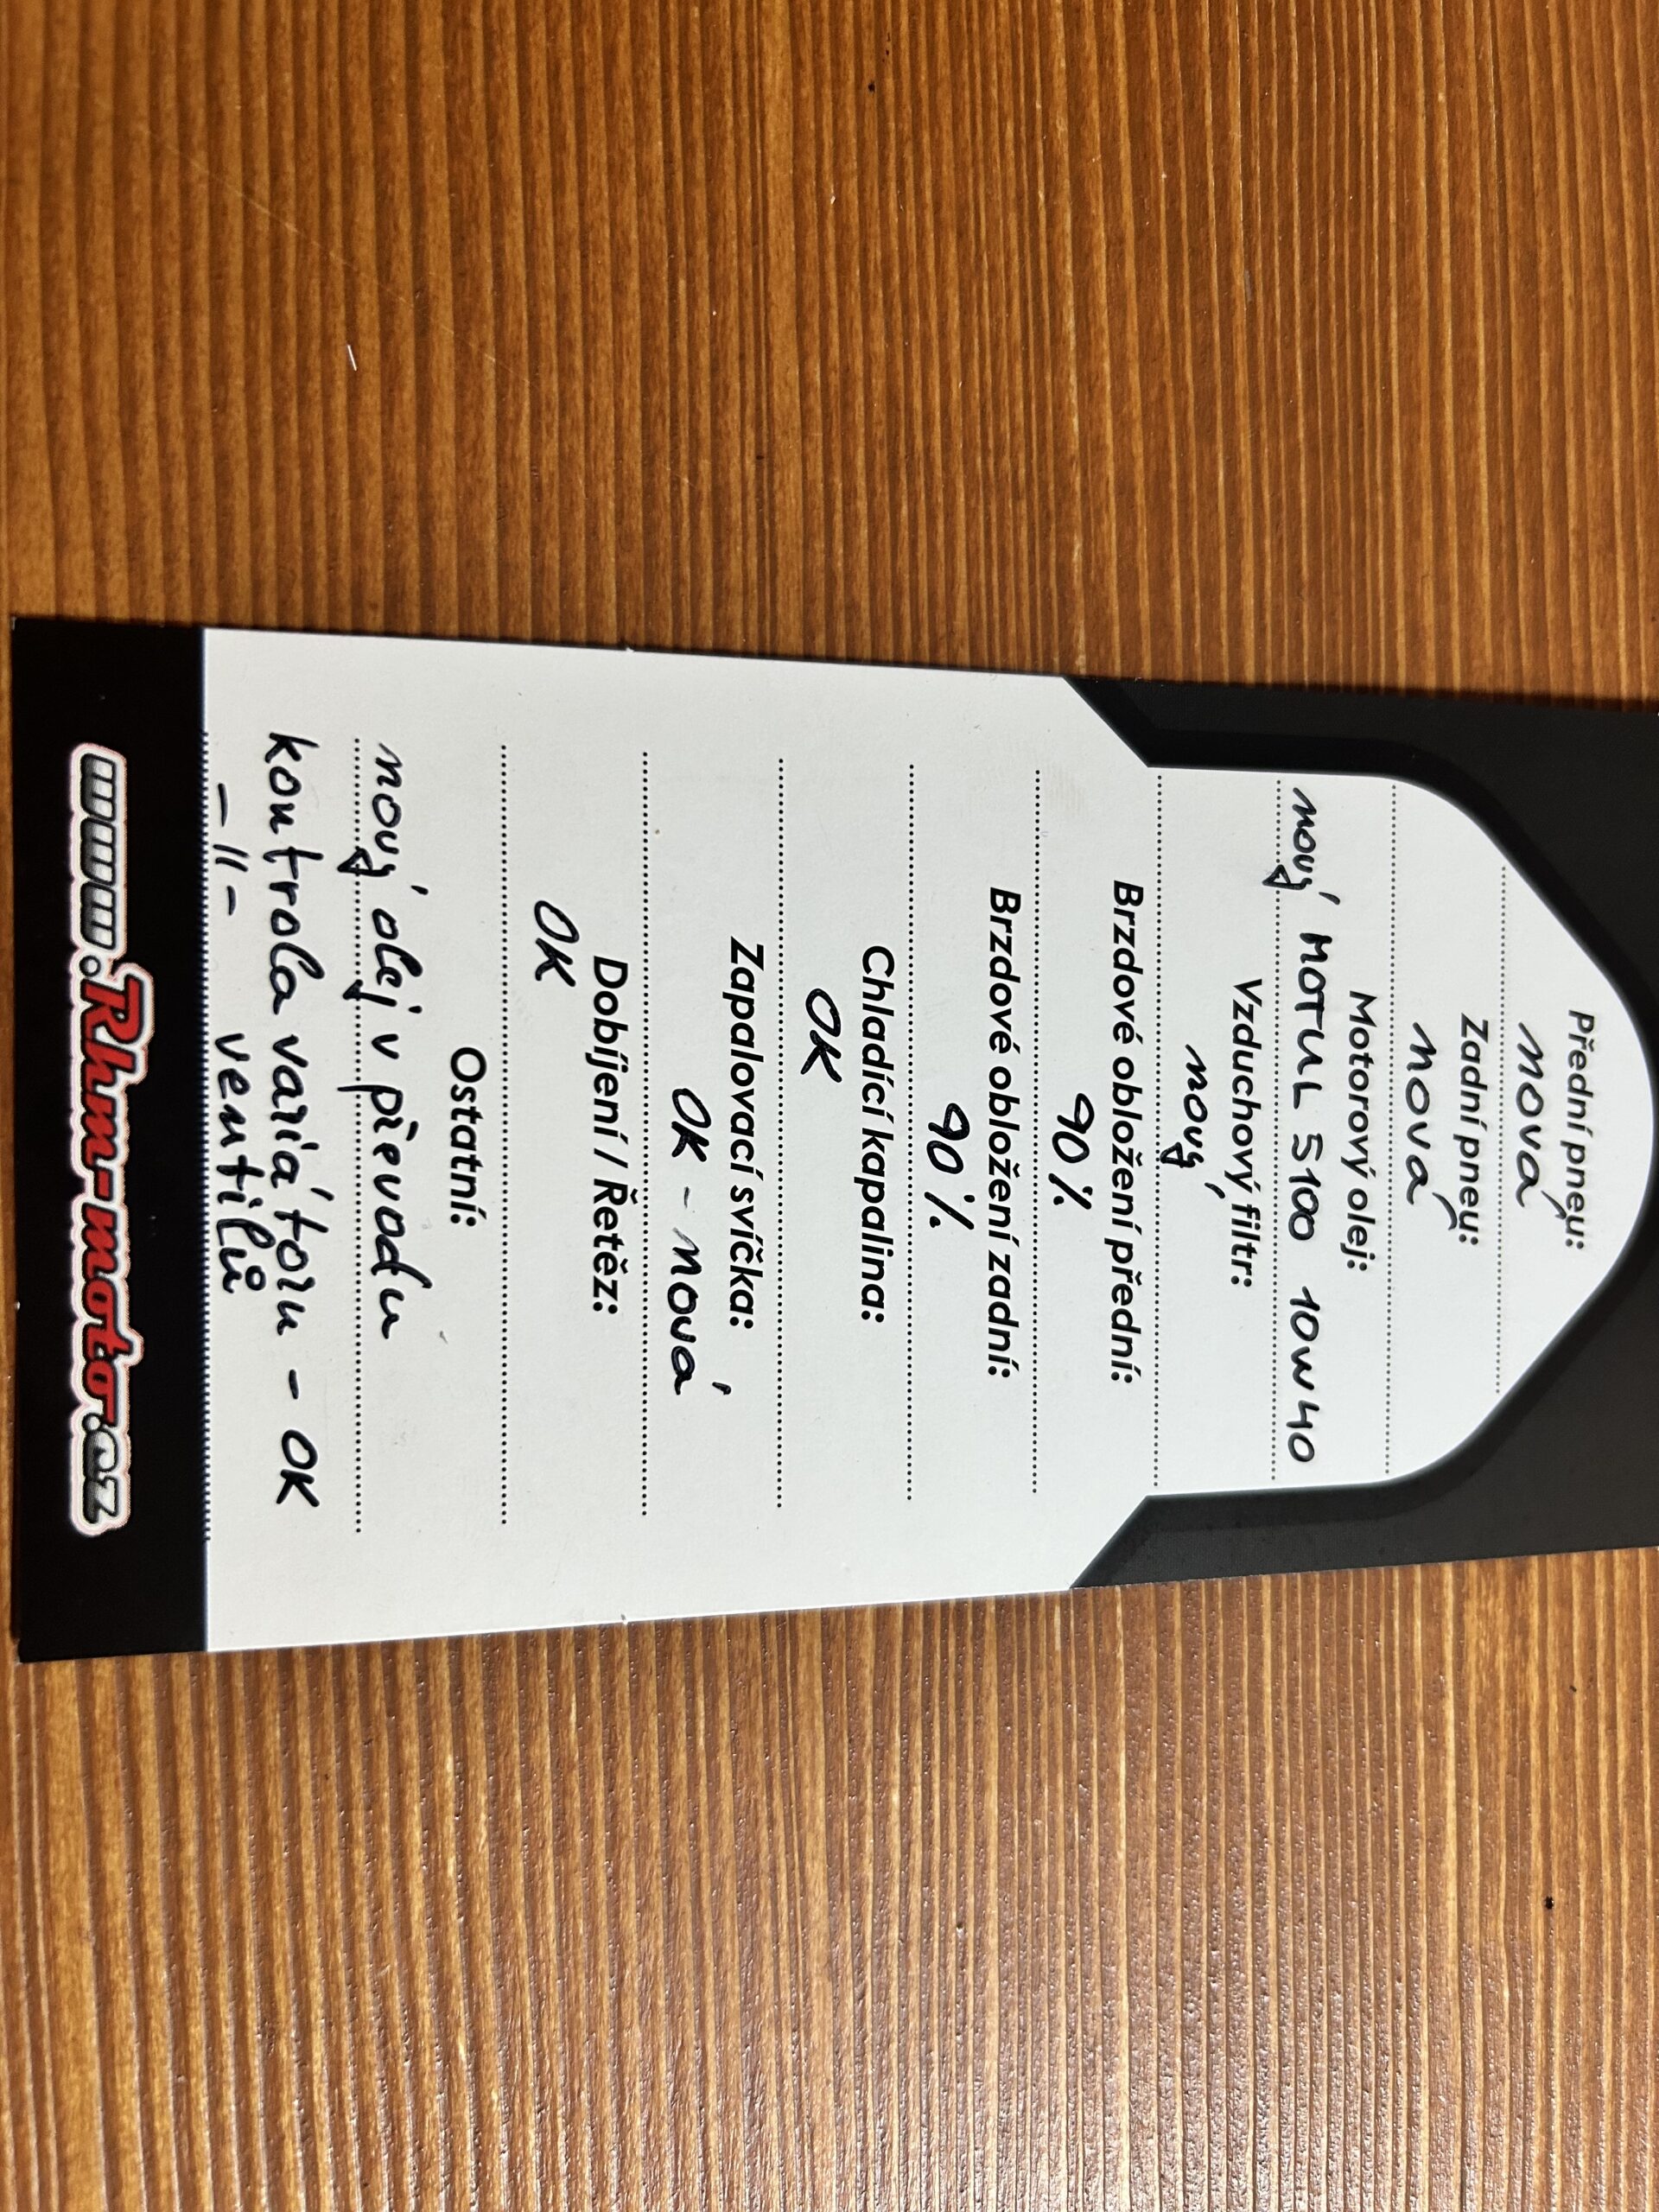 Přední pneu:
nová
Zadní pneu:
nová
Motorový olej:
nový MOTUL 5100 10W40
Vzduchový filtr:
nový
Brzdové obložení přední:
90%
Brzdové obložení zadní:
90%
Chladící kapalina:
OK
Zapalovací svíčka:
OK - nová
Dobíjení / Řetěz:
OK
Ostatní:
nový olej v převodu
kontrola variátoru - OK
-11- ventilů
www.Rhm-motor.cz